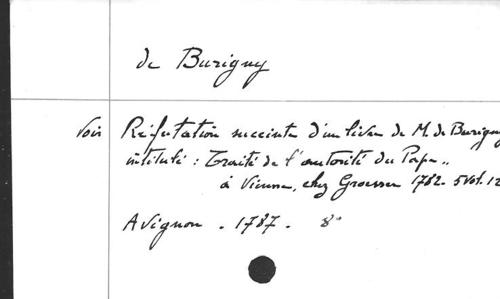 de Burigny
Voir Réfutation succinte d'un livre de M. de Burigny
intitulé : Traité de l'autorité du Pape„
à Vienne, chez Graesser 1782. 5 vol. 12
Avignon . 1787 . 8°